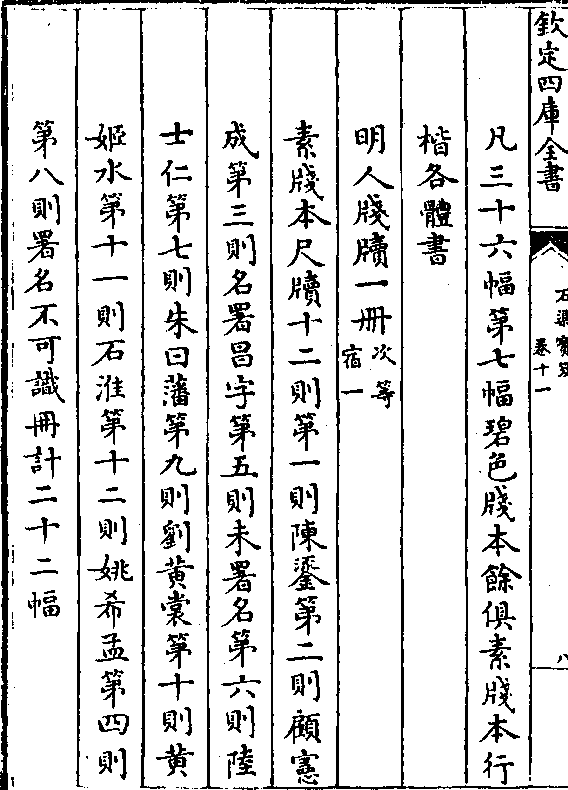 欽定四庫全書
石渠寶笈
卷十一
八
凡三十六幅第七幅碧色牋本餘俱素牋本行
楷各體書
明人牋牘一冊次等
宿一
素牋本尺牘十二則第一則陳鎏第二則顧憲
成第三則名署昌字第五則未署名第六則陸
士仁第七則朱曰藩第九則劉黃裳第十則黃
姬水第十一則石淮第十二則姚希孟第四則
第八則署名不可識冊計二十二幅